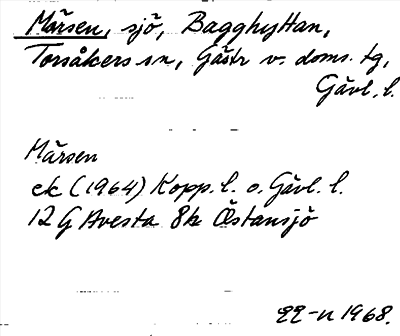 Mårsen, sjö, Bagghyttan,
Torsåkers sn, Gästr v. doms. tg,
Gävl. l.
Mårsen
ek (1964) Kopp. l. o. Gävl. l.
12 G Avesta 8h Östansjö
1968.